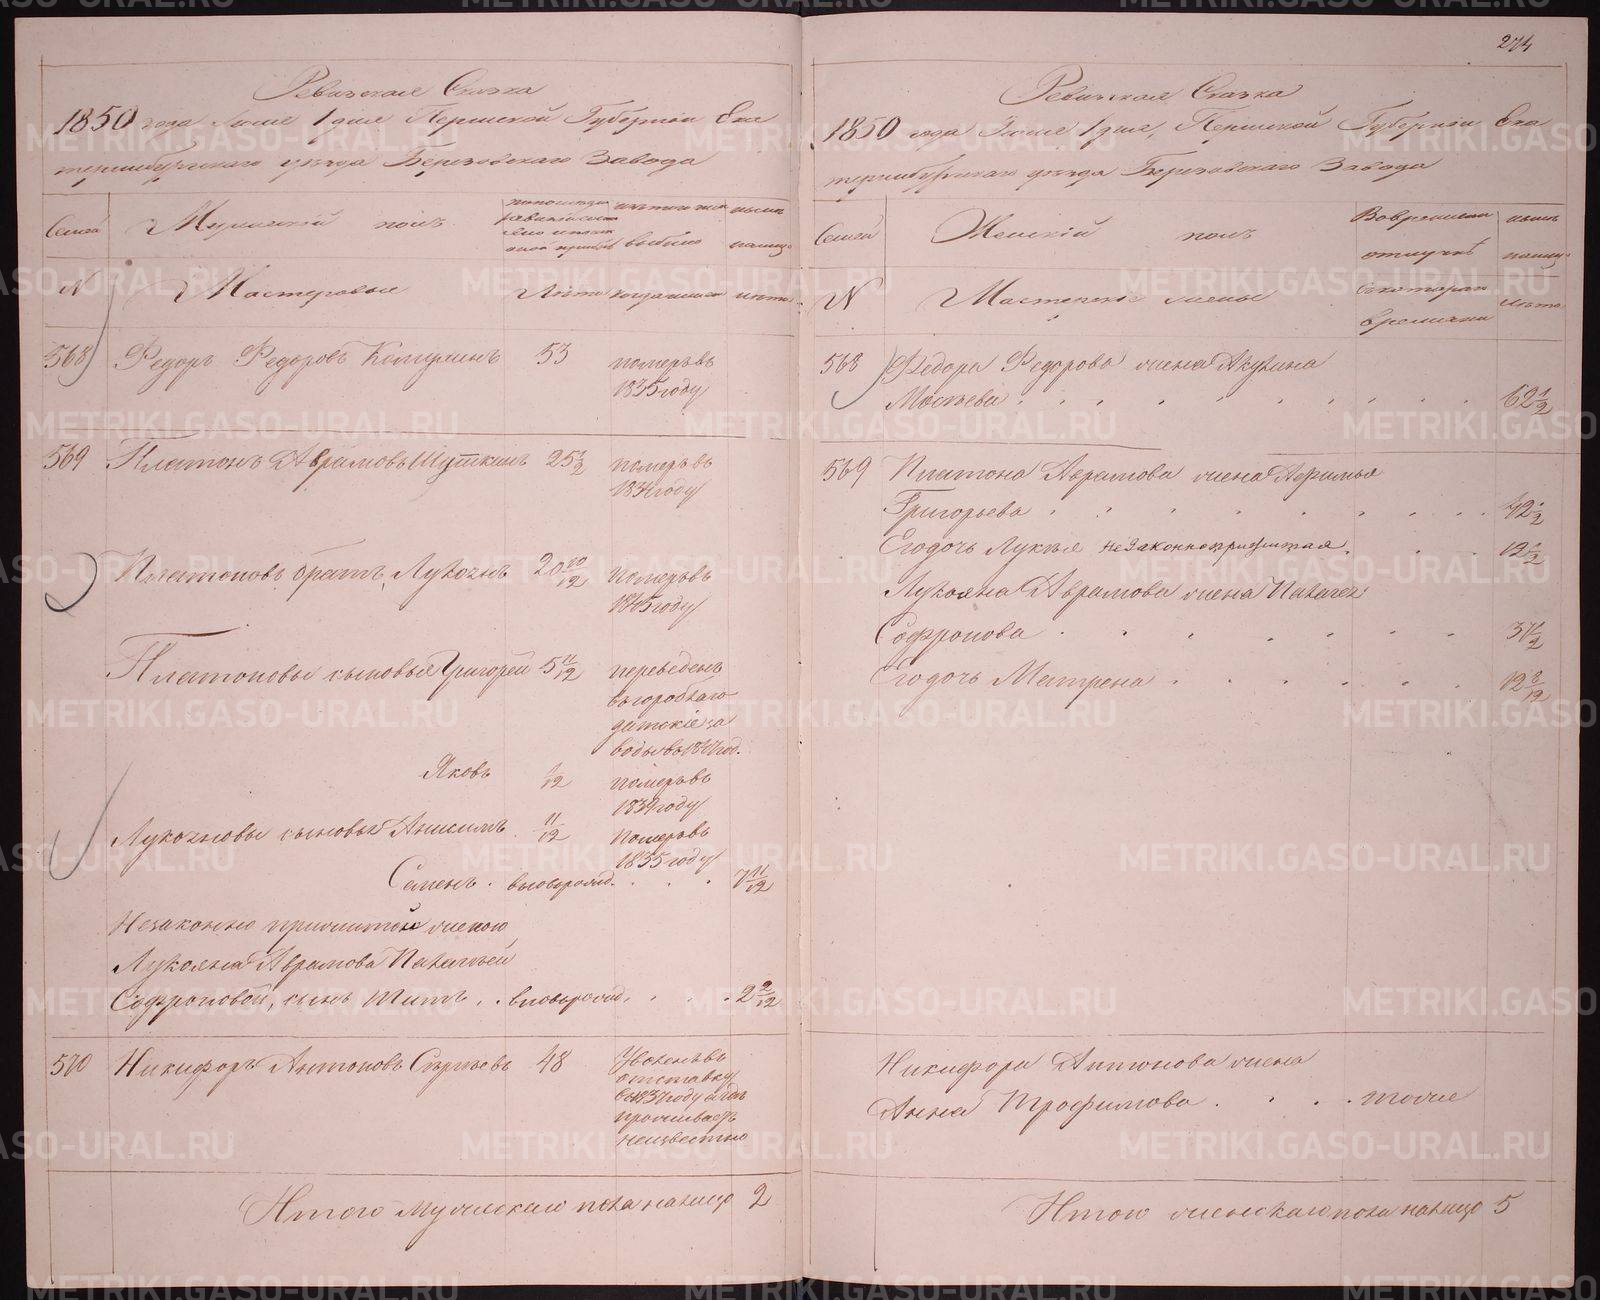 274
Ревизская Сказка
1850 года Июня 1 дня Пермской Губернии Ека
теринбургскаго уезда Березовскаго Завода
Семьи
Мужеский полъ
по последней
ревизии состо
яло и после
оной прибыло
изъ того числа
выбыло
ныне
налицо
N
Мастеровые
Лета
когда именно
лета
568
Федоръ Федоровъ Комулинъ
53
померъ въ
1845 году
569
Платонъ Аврамовъ Шуткинъ
25 1/2
померъ въ
1834 году
Платоновъ братъ, Лукоянъ
20 10/12
померъ въ
1845 году
Платоновы сыновья Григорей
5 11/12
переведенъ
въ
Яковъ
1/12
померъ въ
1834 году
Лукояновы сыновья Анисимъ
11/12
померъ въ
1835 году
Семенъ . вновьрожд. . . .
7 11/12
Незаконно прижитой женою
Лукояна Аврамова Палагеей
Софроновой, сынъ Титъ . . вновьрожд. . . . .
2 2/12
570
Никифоръ Антоновъ Сергеевъ
48
Уволенъ въ
отставку
въ 1837 году а где
проживаетъ
неизвестно
Итого мужескаго пола налицо 2
Ревизская Сказка
1850 года Июня 1 дня, Пермской Губернии Ека
теринбургскаго уезда Березовскаго Завода
Семьи
Женский полъ
Во временной
отлучке
ныне
налицо
N
Мастерские жены
съ котораго
времени
лета
568
Федора Федорова жена Акулина
Мосеева . . . . . . . . .
62 1/2
569
Платона Аврамова жена Афимья
Григорьева . . . . . . . . .
42 1/2
Егодочь Лукея незаконноприжитая . . .
12 1/2
Лукояна Аврамова жена Палагея
Софронова . . . . . . .
37 1/2
Егодочь Матрена . . . . . . .
12 8/12
Никифора Антонова жена
Анна Трофимова . . . . тоже
Итого женскаго пола налицо 5
METRIKI.GASO-URAL.RU